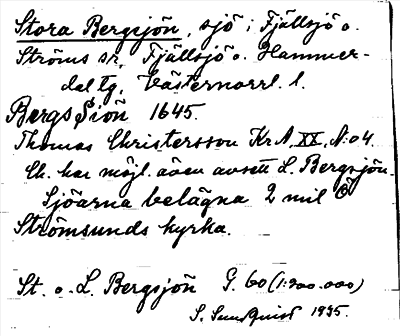 Stora Bergsjön, sjö i Fjällsjö o.
Ströms sr, Fjällsjö o. Hammer-
dal tg, Västernorrl. l.
Bergs Siön 1645.
Thomas Christersson KrA XX, N:o 4.
Ch. har möjl. även avsett L. Bergsjön.
Sjöarna belägna 2 mil Ö
Strömsunds kyrka.
St. o. L. Bergsjön G. 60 (1:200.000)
S. Sundquist 1935.